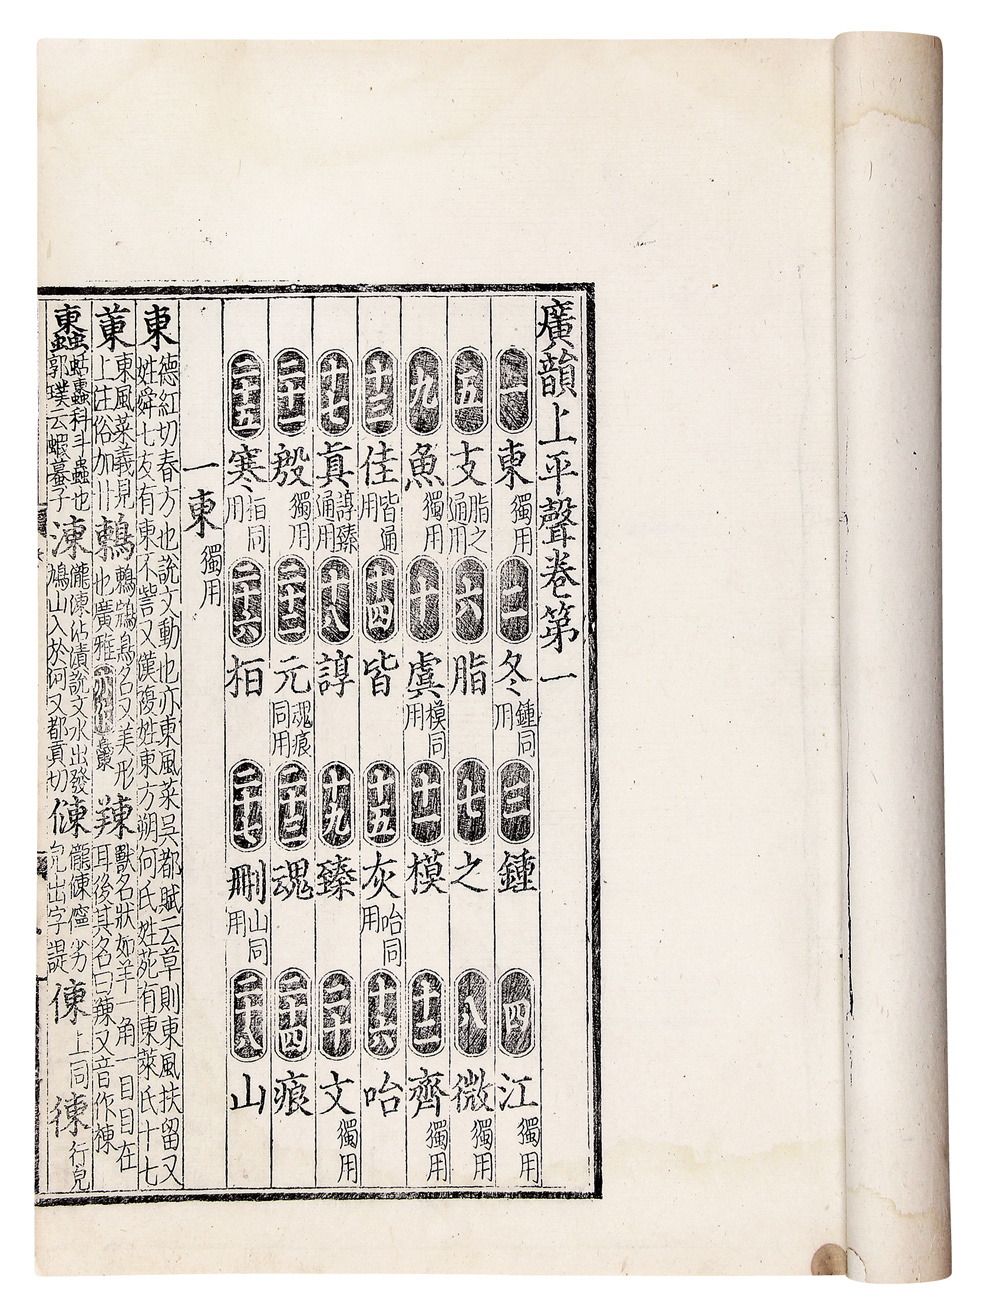 廣韻上平聲卷第一
一東獨用二冬鍾同用三鍾四江獨用
五支脂之通用六脂七之八微獨用
九魚獨用十虞模同用十一模十二齊獨用
十三佳皆通用十四皆十五灰咍同用十六咍
十七真諄臻通用十八諄十九臻二十文獨用
二十一殷獨用二十二元魂痕同用二十三魂二十四痕
二十五寒桓同用二十六桓二十七刪山同用二十八山
一東獨用
東德紅切春方也說文動也亦東風菜吳都賦云草則東風扶留又
姓舜七友有東不訾又漢複姓東方朔何氏姓苑有東萊氏十七
菄東風菜義見上注俗加艹鶇鶇鵍鳥名又美形也廣雅
䍶獸名狀如羊一角一目目在耳後其名曰䍶又音作陳
蝀蛞蝀科斗蟲也郭璞云蝦蟇子凍瀧凍沾漬說文水出發鳩山入於河又都貢切
㑈儱㑈儜劣皃出字諟倲上同徚行皃